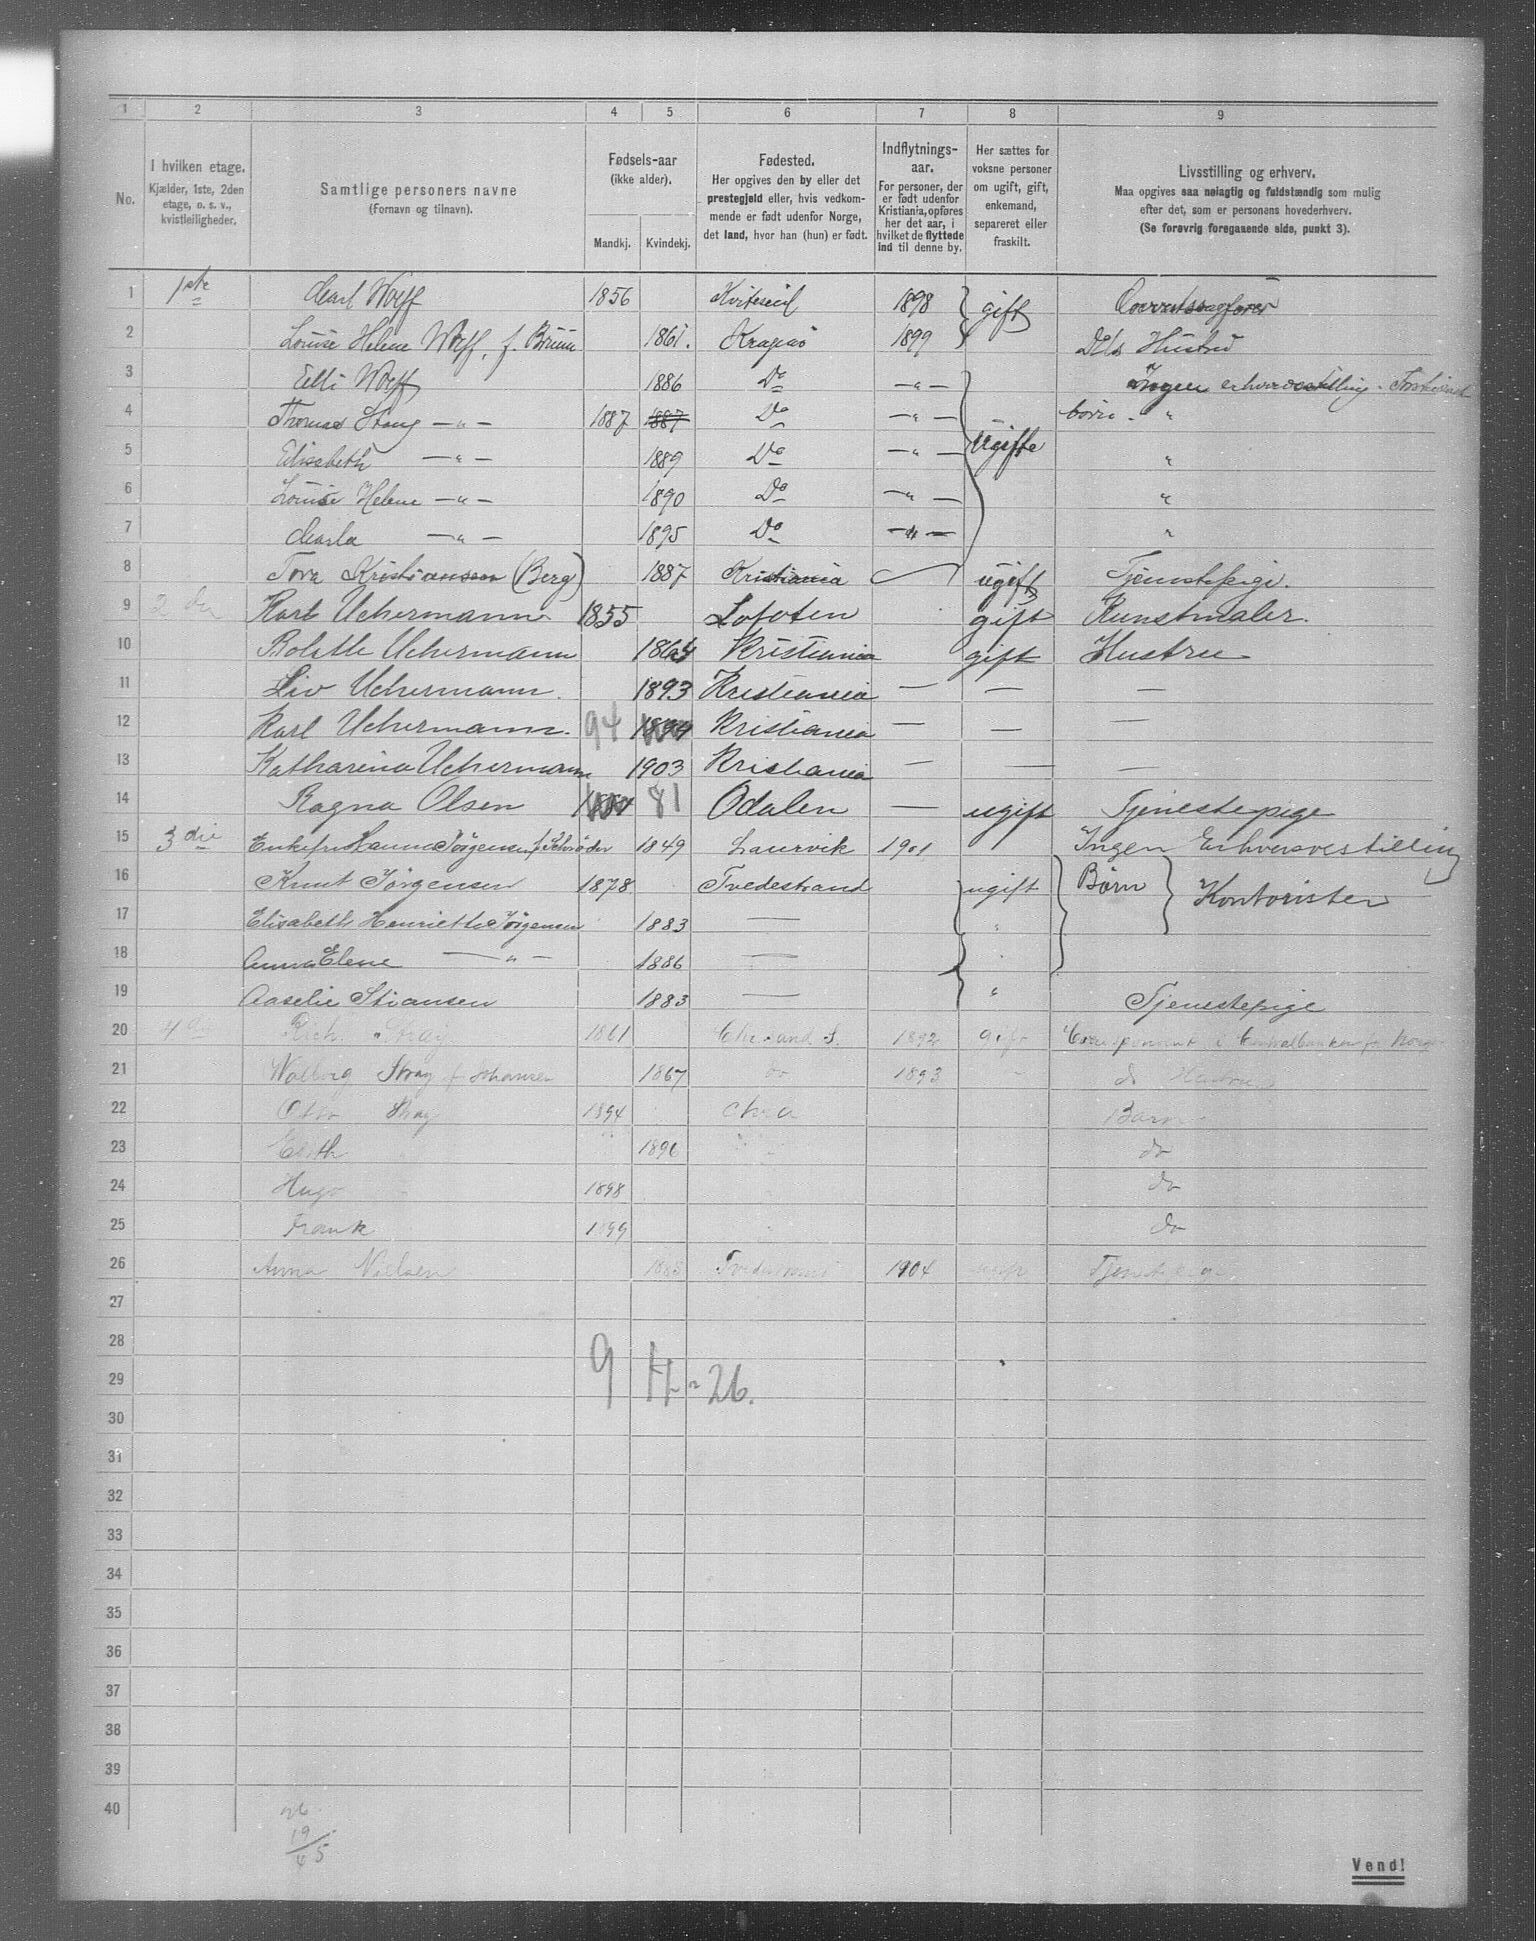 1 2 3 4 5 6 7 8 9
No.
I hvilken etage.
Kjælder, 1ste, 2den
etage, o. s. v.,
kvistleiligheder.
Samtlige personers navne
(Fornavn og tilnavn).
Fødsels-aar
(ikke alder).
Mandkj. Kvindekj.
Fødested.
Her opgives den by eller det
prestegjeld eller, hvis vedkom-
mende er født udenfor Norge,
det land, hvor han (hun) er født.
Indflytnings-
aar.
For personer, der
er født udenfor
Kristiania, opføres
her det aar, i
hvilket de flyttede
ind til denne by.
Her sættes for
voksne personer
om ugift, gift,
enkemand,
separeret eller
fraskilt.
Livsstilling og erhverv.
Maa opgives saa nøiagtig og fuldstændig som mulig
efter det, som er personens hovederhverv.
(Se forøvrig foregaaende side, punkt 3).
1 1ste Carl Wolff 1856 Kviteseid 1898 gift Overretssagfører
2 Louise Helene Wolff, f. Bruun 1861. Kragerø 1899 Dets Hustru
3 Elli Wolff 1886 Do —"— Ingen erhvervsstilling -
4 Thomas Stang —"— 1887 1887 Do —"— børn. "
5 Elisabeth —"— 1889 Do —"— Ugifte "
6 Louise Helene —"— 1890 Do —"— "
7 Carla —"— 1895 Do —"— "
8 Tora Kristiansen (Berg) 1887 Kristiania ugift Tjenestepige.
9 2den Karl Uchermann 1855 Lofoten gift Kunstmaler.
10 Bolette Uchermann 1864 Kristiania gift Hustru
11 Liv Uchermann. 1893 Kristiania — — —
12 Karl Uchermann. 94 1894 Kristiania — — —
13 Katharina Uchermann 1903 Kristiania — — —
14 Ragna Olsen 81 Odalen — ugift Tjenestepige
15 3die Enkefru Hanna Jørgensen f. Schrøder 1849 Laurvik 1901 Ingen Erhvervsstilling
16 Knut Jørgensen 1878 Tvedestrand ugift Børn Kontorister
17 Elisabeth Henriette Jørgensen 1883 — "
18 Anna Elene —"— 1886 — "
19 Aaselie Stiansen 1883 — " Tjenestepige
20 4de Rich. Stray 1861 Chr.sand S. 1892 gift Correspondent i Centralbanken for Norge
21 Walborg Stray f. Johansen 1867 do 1893 do Hustru
22 Otto Stray 1894 Chr.a Barn
23 Edith 1896 do
24 Hugo 1898 do
25 Frank 1899 do
26 Anna Nielsen 1885 Tvedestrand 1904 ugift Tjenestepige
27
28
29
9 17 = 26.
30
31
32
33
34
35
36
37
38
39
40
26
19/45
Vend!